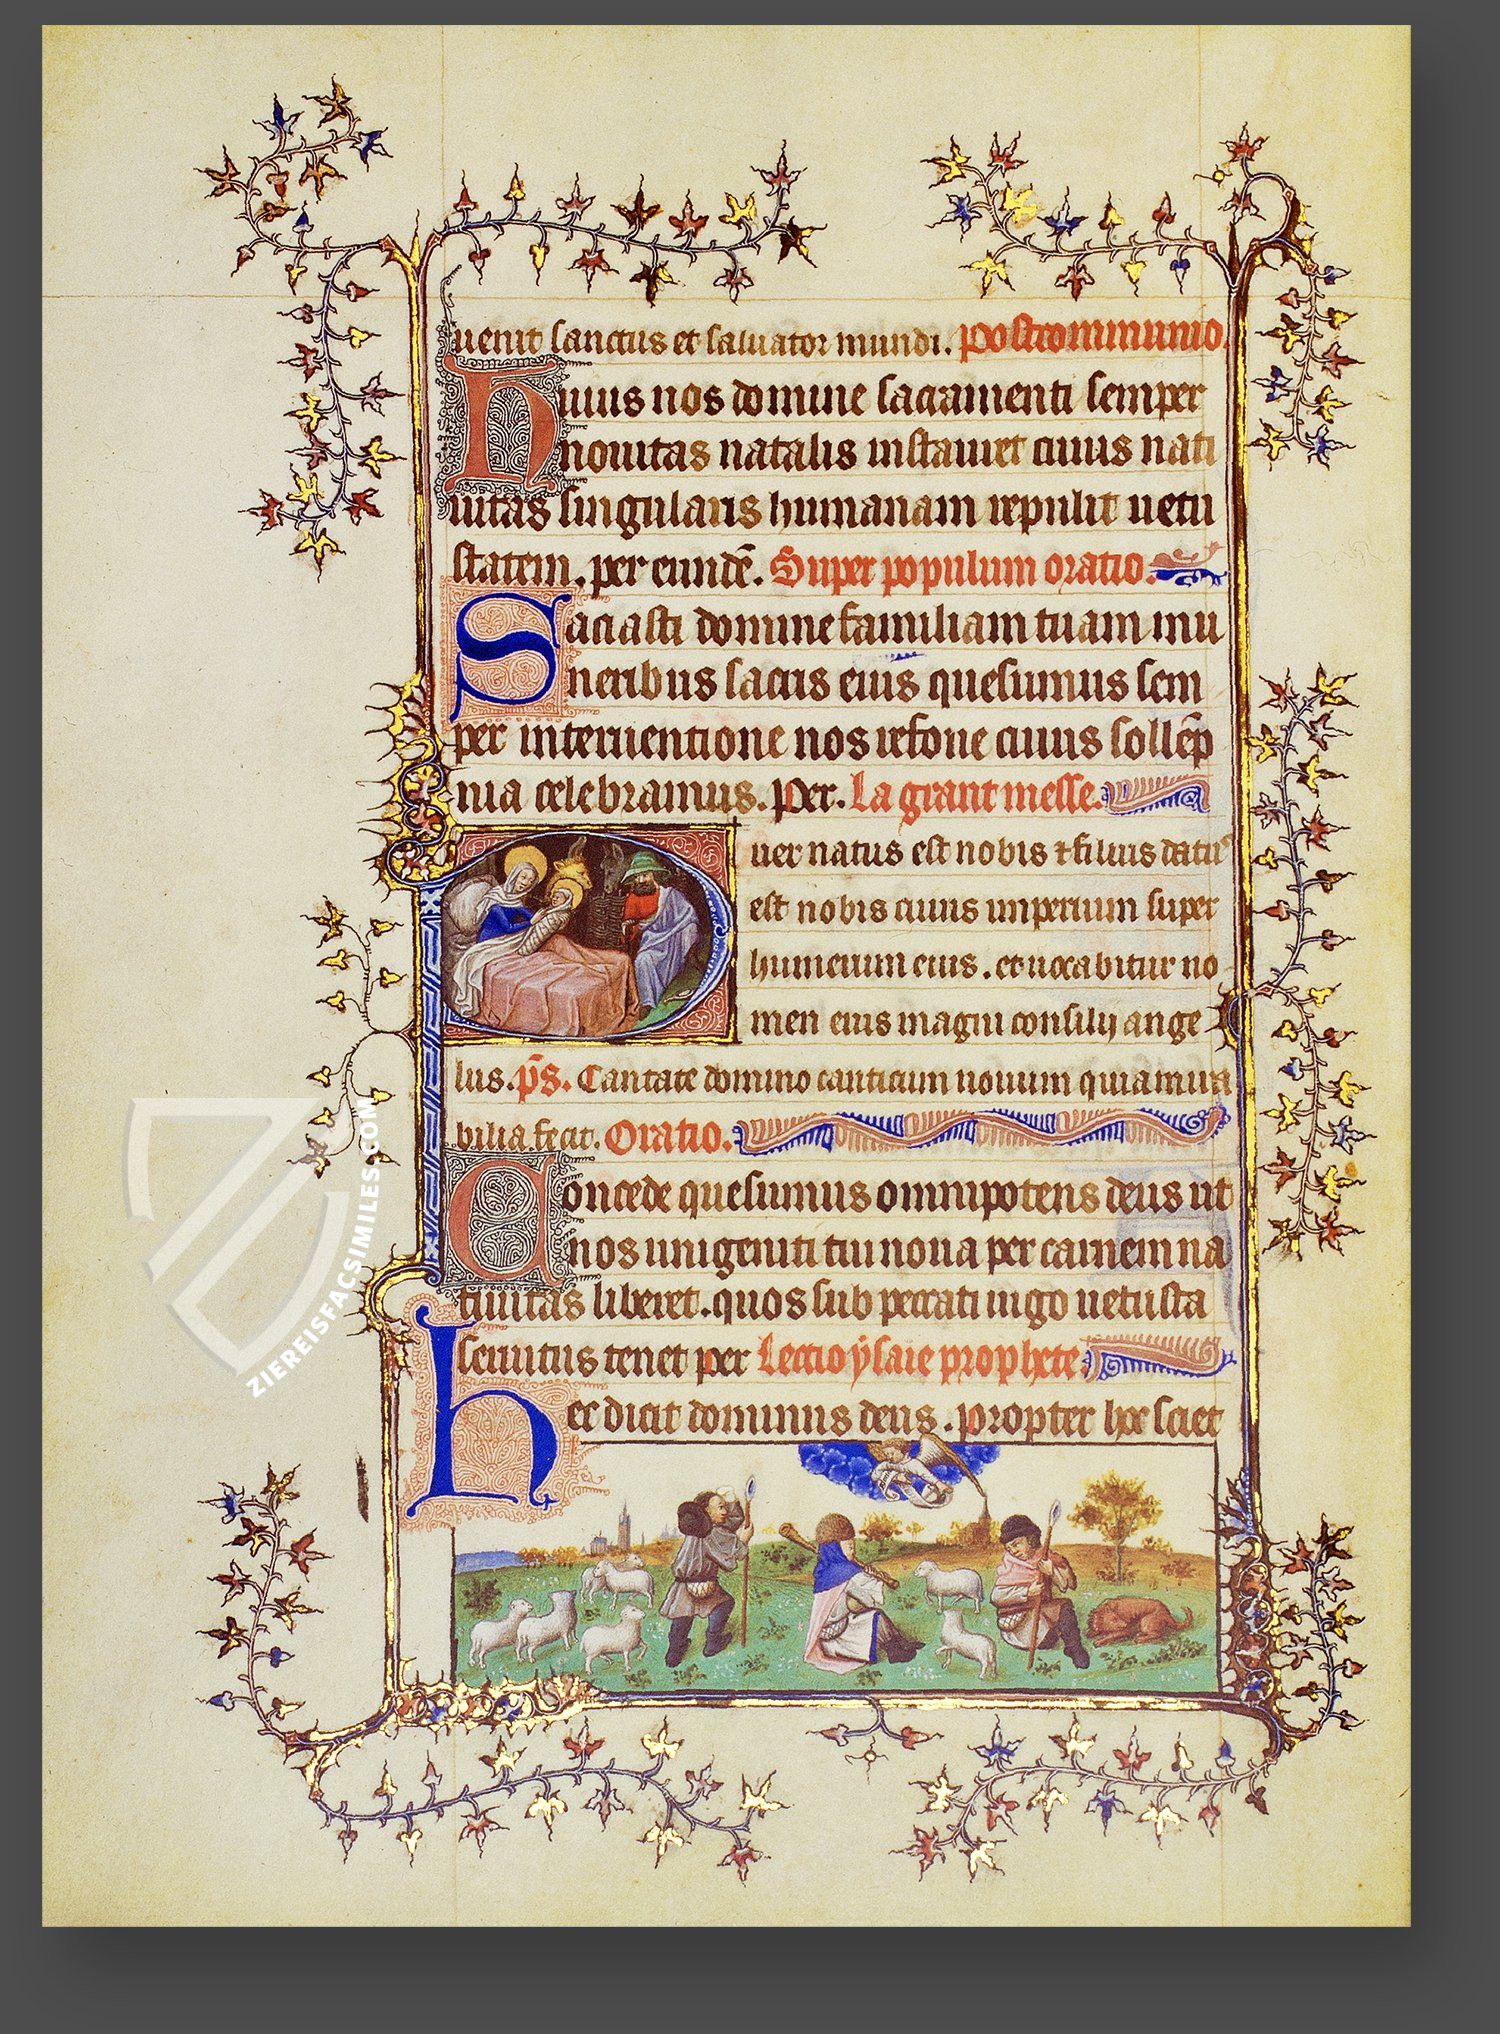 uenit sanctus et saluator mundi. Postcommunio.
Huius nos domine sacramenti semper
nouitas natalis instauret cuius nati
uitas singularis humanam repulit uetu
statem. per eundē. Super populum oratio.
Saciasti domine familiam tuam mu
neribus sacris eius quesumus sem
per interuentione nos refoue cuius sollēp
nia celebramus. Per. La grant messe.
uer natus est nobis ⁊ filius datus
est nobis cuius imperium super
humerum eius. et uocabitur no
men eius magni consilij ange
lus. p̄s. Cantate domino canticum nouum quia mira
bilia fecit. Oratio.
Concede quesumus omnipotens deus ut
nos unigeniti tui noua per carnem na
tiuitas liberet. quos sub peccati iugo uetusta
seruitus tenet per Lectio ysaie prophete.
hec dicit dominus deus. propter hoc sciet
ZIEREISFACSIMILES.COM